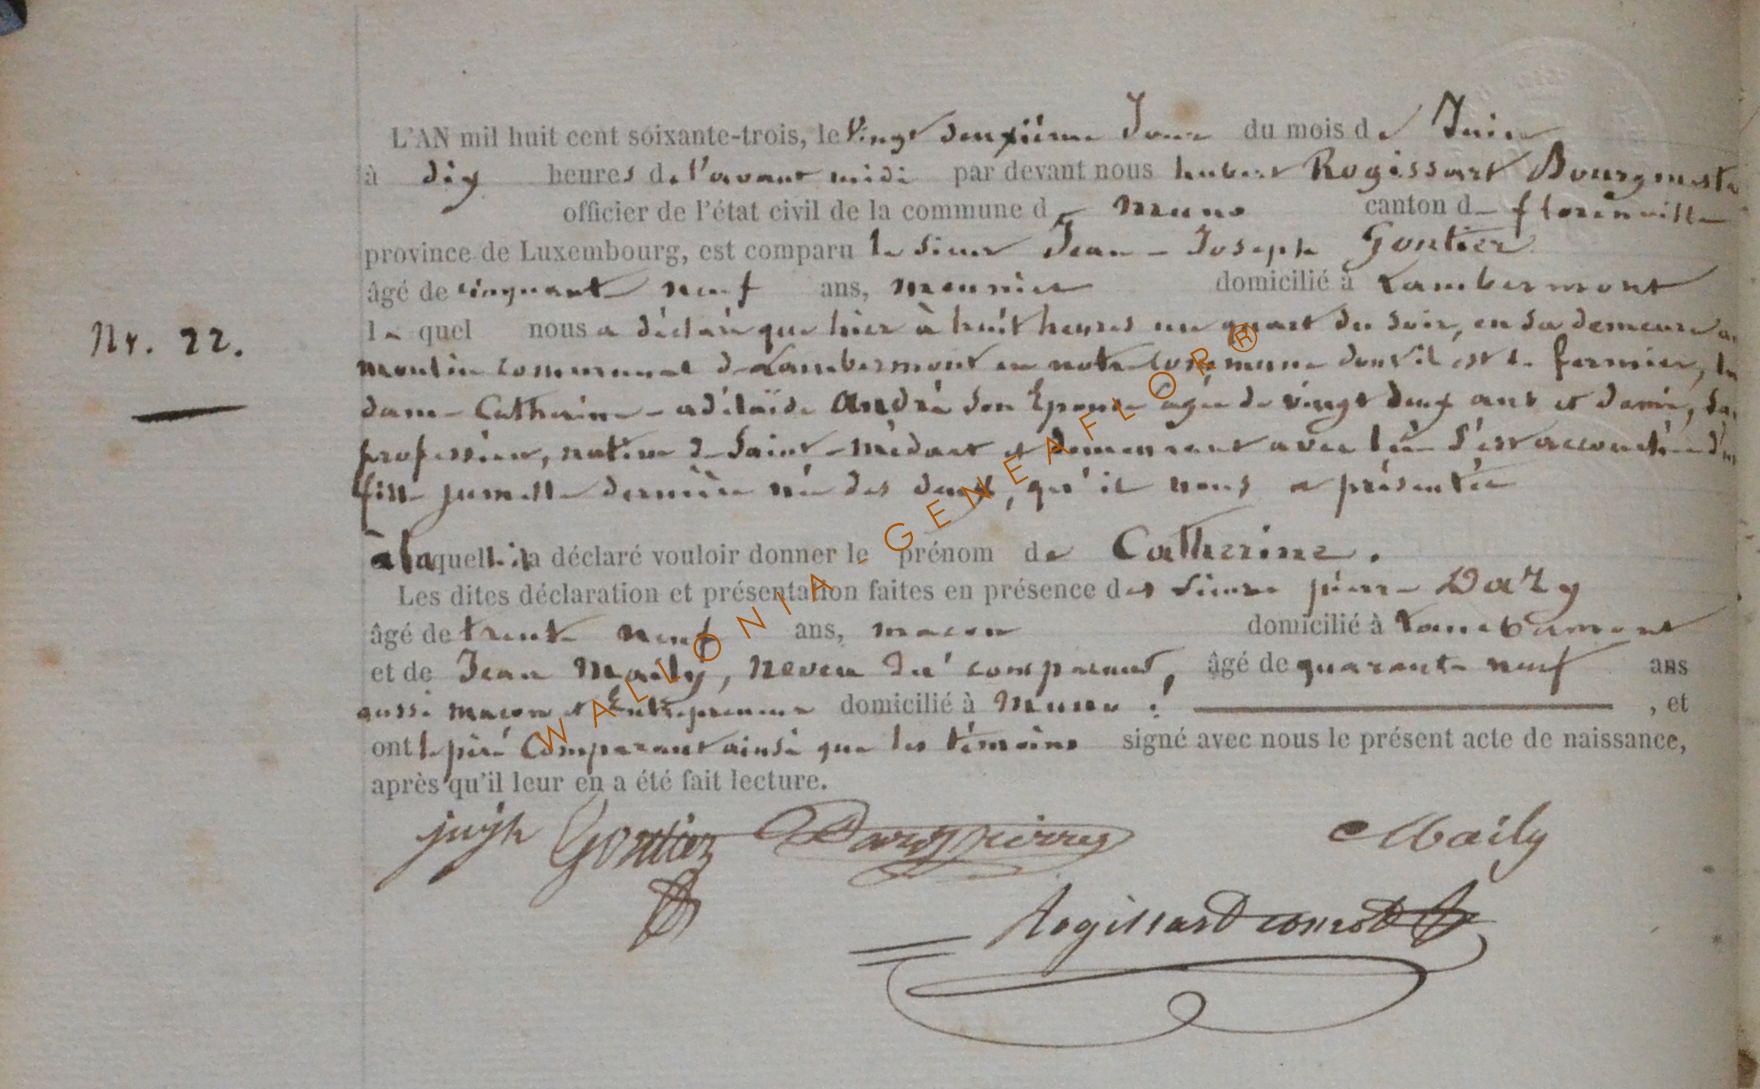 L'AN mil huit cent soixante-trois, le Vingt deuxième Jour du mois de Juin
à dix heures de l'avant midi par devant nous hubert Rogissart Bourgmestre
officier de l'état civil de la commune de Muno canton de florenville
province de Luxembourg, est comparu le Sieur Jean-Joseph Gontier
âgé de cinquante neuf ans, meunier domicilié à Lambermont
lequel nous a déclaré que hier à huit heures un quart du soir, en sa demeure au
Nr. 22.
moulin communal de Lambermont en notre commune dont il est le fermier, la
dame Catherine-adélaïde André son Epouse agée de vingt deux ans et demie, sans
profession, native de Saint-Médart et demeurant avec lui S'est accouchée d'une
fille jumelle dernière née des deux, qu'il nous a présentée
à laquelle il a déclaré vouloir donner le prénom de Catherine.
Les dites déclaration et présentation faites en présence des Sieurs pierre Dazy
âgé de trente neuf ans, macon domicilié à Lambermont
et de Jean Maily, neveu du comparant, âgé de quarante neuf ans
aussi macon et Entrepreneur domicilié à Muno , et
ont le père Comparant ainsi que les témoins signé avec nous le présent acte de naissance,
après qu'il leur en a été fait lecture.
Gontier Dazy pierre Maily
Rogissart
WALLONIA-GENEAFLOR®